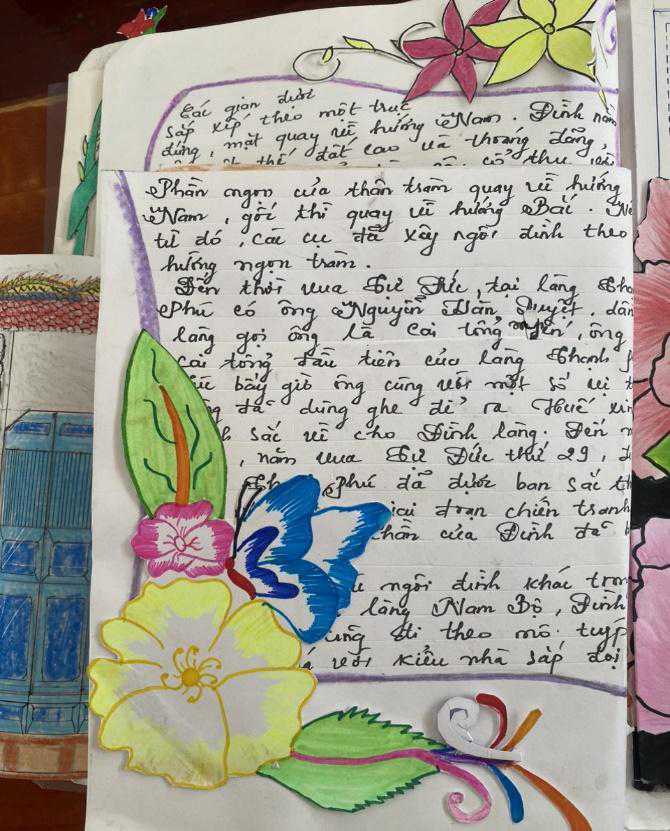 Các gian được
sắp xếp theo một trục
đứng, mặt quay về hướng Nam. Đình nằm
đất cao và thoáng đãng,
Phần ngọn của thân tràm quay về hướng
Nam, gốc thì quay về hướng Bắc.
từ đó, các cụ đã xây ngôi đình theo
hướng ngọn tràm.
Đến thời vua Tự Đức, tại làng
Phú có ông Nguyễn Văn Duyệt, dân
làng gọi ông là Cai tổng, ông
cai tổng đầu tiên của làng Thạnh
bấy giờ ông cùng với một số vị
đã dùng ghe đi ra Huế xin
sắc về cho Đình làng. Đến
, năm vua Tự Đức thứ 29,
Phú đã được ban sắc
giai đoạn chiến tranh
của Đình đã
ngôi đình khác
làng Nam Bộ, Đình
cũng đi theo mô tuyp
với kiểu nhà sắp đọi